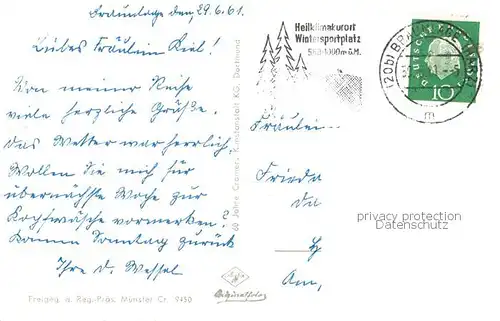 Braunlage den, 29.6.61.
Liebes Fräulein Kiel!
Von meiner Reise
viele herzliche Grüße.
Das Wetter war herrlich,
Wollen Sie mich für
übernächste Woche zur
Kopfwäsche vormerken?
Komme Sonntag zurück
Ihre D. Wessel
Freigeg. d. Reg.-Präs. Münster Cr. 9450
60 Jahre Cramers Kunstanstalt KG, Dortmund
Heilklimakurort
Wintersportplatz
(20b) BRAUNLAGE (HARZ)
m
DEUTSCHE
10
Fräulein
Frieda
Am,
privacy protection
Datenschutz